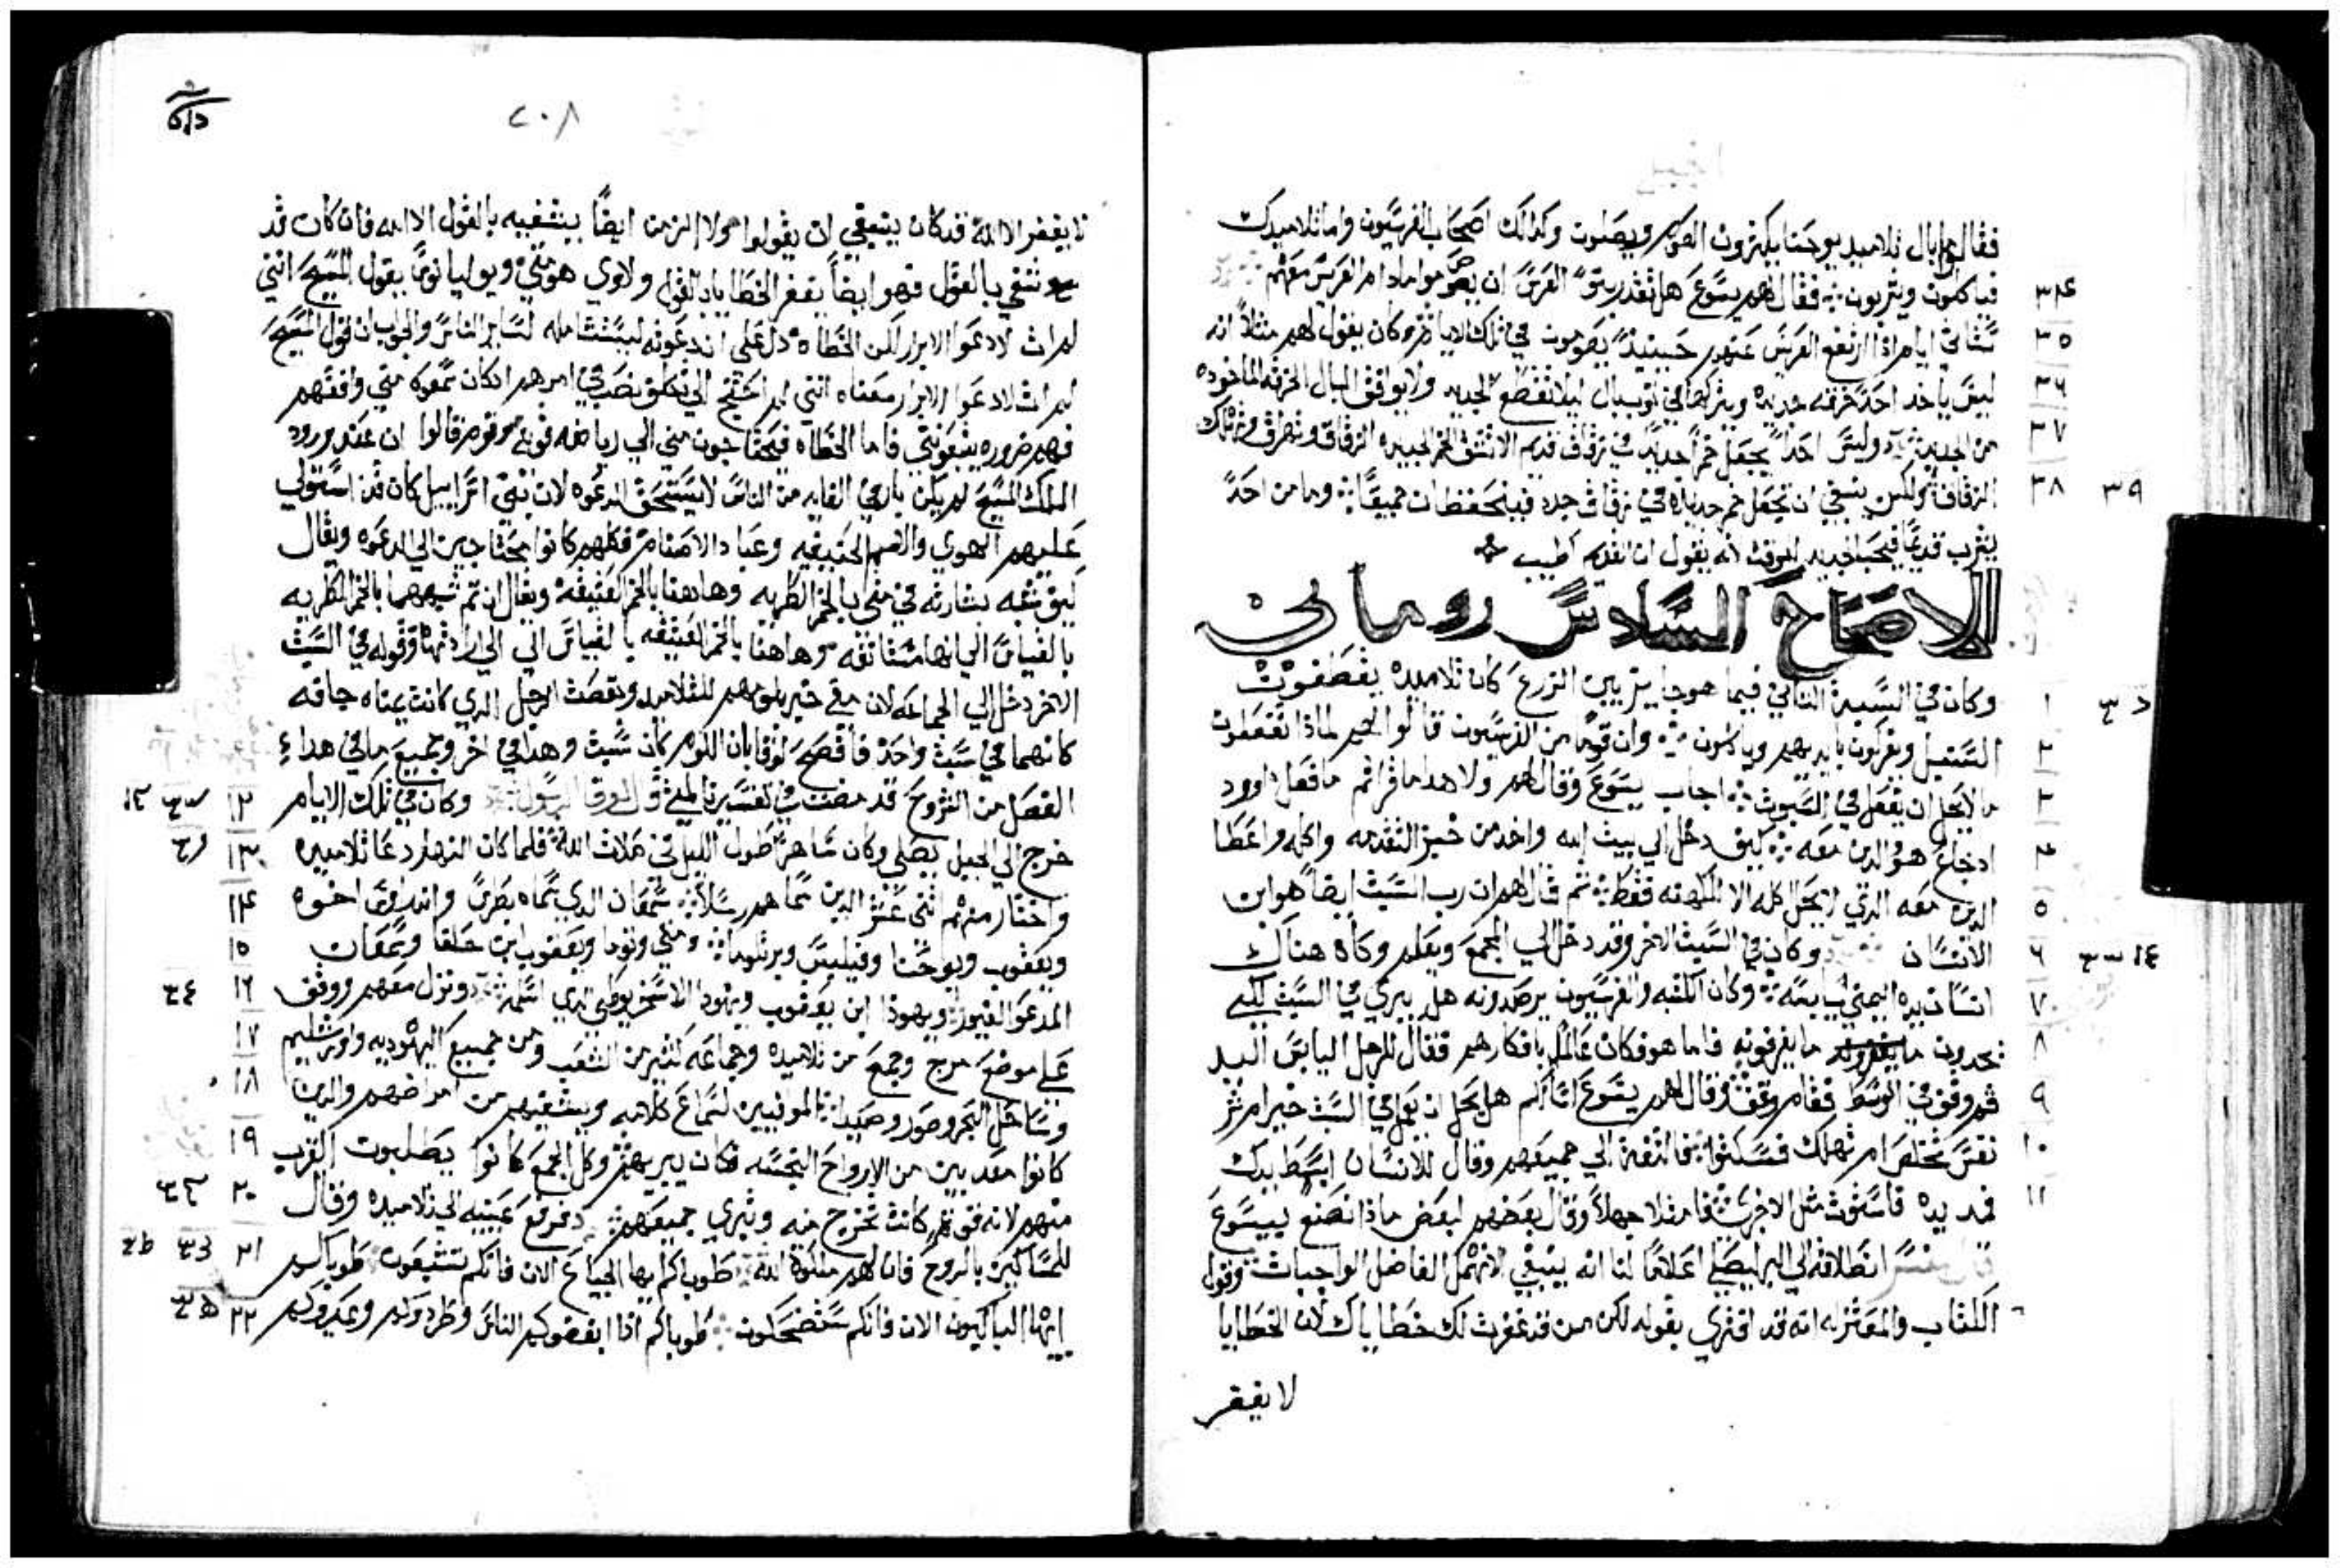 فقالو ما بال تلاميد يوحنا يكترون الصوم ويصلون وكدلك اصحاب الفرسيون واما تلاميدك
٣٤ فياكلون ويشربون فقال لهم يسوع هل تقدر بنو العرس ان يصوموا مادام العرس معهم
٣٥ ستاتي ايام ادا ارتفع العرس عنهم حينيد يصومون في تلك الايام وكان يقول لهم متلا انه
٣٦ ليس ياخد احد خرقه جديده ويتركها في توب بال ليلا تقطع الجديد ولا يوافق البال الخرقه الماخوده
٣٧ من الجديد وليس احد يجعل خمرا جديدا في زقاق قديم الا تنشق الخمر الجديده الزقاق وتهرق وتهلك
٣٨ ٣٩ الزقاق ولكن ينبغي ان تجعل خمر جديده في زقاق جدد فيتحفظان جميعا وما من احد
يشرب قديما فيحب الجديد للوقت لانه يقول ان القديم اطيب
الاصحاح السادس روماني
١ وكان في السبت التاني فيما هو جايز بين الزرع كان تلاميده يقطفون
٢ السنبل ويفركون بايديهم وياكلون وان قوما من الفرسيون قالوا لهم لمادا تفعلون
٣ ما لا يحل ان يفعل في السبوت اجاب يسوع وقال لهم ولا هدا ما قراتم ما فعل داوود
٤ اد جاع هو والدين معه كيف دخل الي بيت الله واخد من خبز التقدمه واكله واعطا
٥ الدين معه الدي لا يحل اكله الا للكهنه فقط تم قال لهم ان رب السبت ايضا هو ابن
٦ الانسان وكان في السبت الاخر وقد دخل الي المجمع ويعلم وكان هناك
٧ انسان يده اليمني يابسه وكان الكتبه والفرسيون يرصدونه هل يبري في السبت لكي
٨ يجدون ما يقرفونه فاما هو فكان عالما بافكارهم فقال للرجل اليابس اليد
٩ قم وقف في الوسط فقام ووقف وقال لهم يسوع اسالكم هل يحل ان يعمل في السبت خير ام شر
١٠ نفس تخلص ام تهلك فسكتوا فالتفت الي جميعهم وقال للانسان ابسط يدك
١١ فمد يده فاستوت متل الاخري فامتلا جهلا وقال بعضهم لبعض مادا نصنع بيسوع
انطلاقه الي البر ليصلي اعلاما لنا انه ينبغي لا نهمل الفاضل الواجبات وقول
الكتاب والمعتزله انه قد افتري بقوله لكن من قد غفرت لك خطاياك لان الخطايا
لا يغفر
٢٠٨
لا يغفر الا الله فدكان ينبغي ان يقولوا هولا الزمن ايضا يشفيه بالقول الا الله فان كان قد
شفي بالقول فهو ايضا يغفر الخطايا بالقول ولاوي هو متي ويوليانوس يقول المسيح انني
لم ات لادعوا الابرار لكن الخطاه دل علي ان دعوته ليست شامله لساير الناس والجواب ان قول المسيح
لم ات لادعوا الابرار معناه انني لم احتج الي تصعب في امرهم ادكان سمعوا مني وافقهم
فهم ضروره يتبعوني فاما الخطاه فيحتاجون مني الي رياضه قويه وقوم قالوا ان عند ورود
الملك المسيح لم يكن باري الغايه من الناس لا يستحق الدعوه لان بني اسراييل كان قد استولي
عليهم الهوي والامم الحنيفيه وعباد الاصنام فكلهم كانوا محتاجين الي الدعوه ويقال
كيف شبه بشارته في متي بالخمر الطريه وهاهنا بالخمر العتيقه ويقال ان تم شبهها بالخمر الطريه
بالقياس الي انها مستانفه وهاهنا بالخمر العتيقه بالقياس الي وقوله في السبت
الاخر دخل الي الجماعه لان متي خبر بلومهم للتلاميد وبقصت الرجل الدي كانت يمناه جافه
كانهما في سبت واحد فافصح لوقا بان اللوم كان سبت وهدا في اخر وجميع ما في هدا
١٢ الفصل من الشروح قد مضت في تفسيرنا لمتي وكان في تلك الايام
١٣ خرج الي الجبل يصلي وكان ساهرا طول الليل في صلات الله فلما كان النهار دعا تلاميده
١٤ واختار منهم اتني عشر الدين سماهم رسلا سمعان الدي سماه بطرس واندراوس اخوه
١٥ ويعقوب ويوحنا وفيلبس وبرتلوما ومتي وتوما ويعقوب ابن حلفا وسمعان
١٦ المدعو الغيور ويهودا ابن يعقوب ويهودا الاسخريوطي الدي اسلمه ونزل معهم ووقف
١٧ علي موضع مرج وجمع من تلاميده وجماعه كتير من الشعب ومن جميع اليهوديه واورشليم
١٨ وساحل البحر وصور وصيدا الموافيين لسماع كلامه ويشفيهم من امراضهم والدين
١٩ كانوا معدبين من الارواح النجسه فكان يبريهم وكل الجمع كانوا يطلبون القرب
٢٠ منهم لانه قوة كانت تخرج منه وتبري جميعهم فرفع عينيه الي تلاميده وقال
٢١ للمساكين بالروح فان لهم ملكوة الله طوباكم ايها الجياع الان فانكم تشبعون طوباكم
٢٢ ايها الباكيون الان فانكم ستضحكون طوباكم ادا ابغضوكم الناس وطردوكم وعيروكم